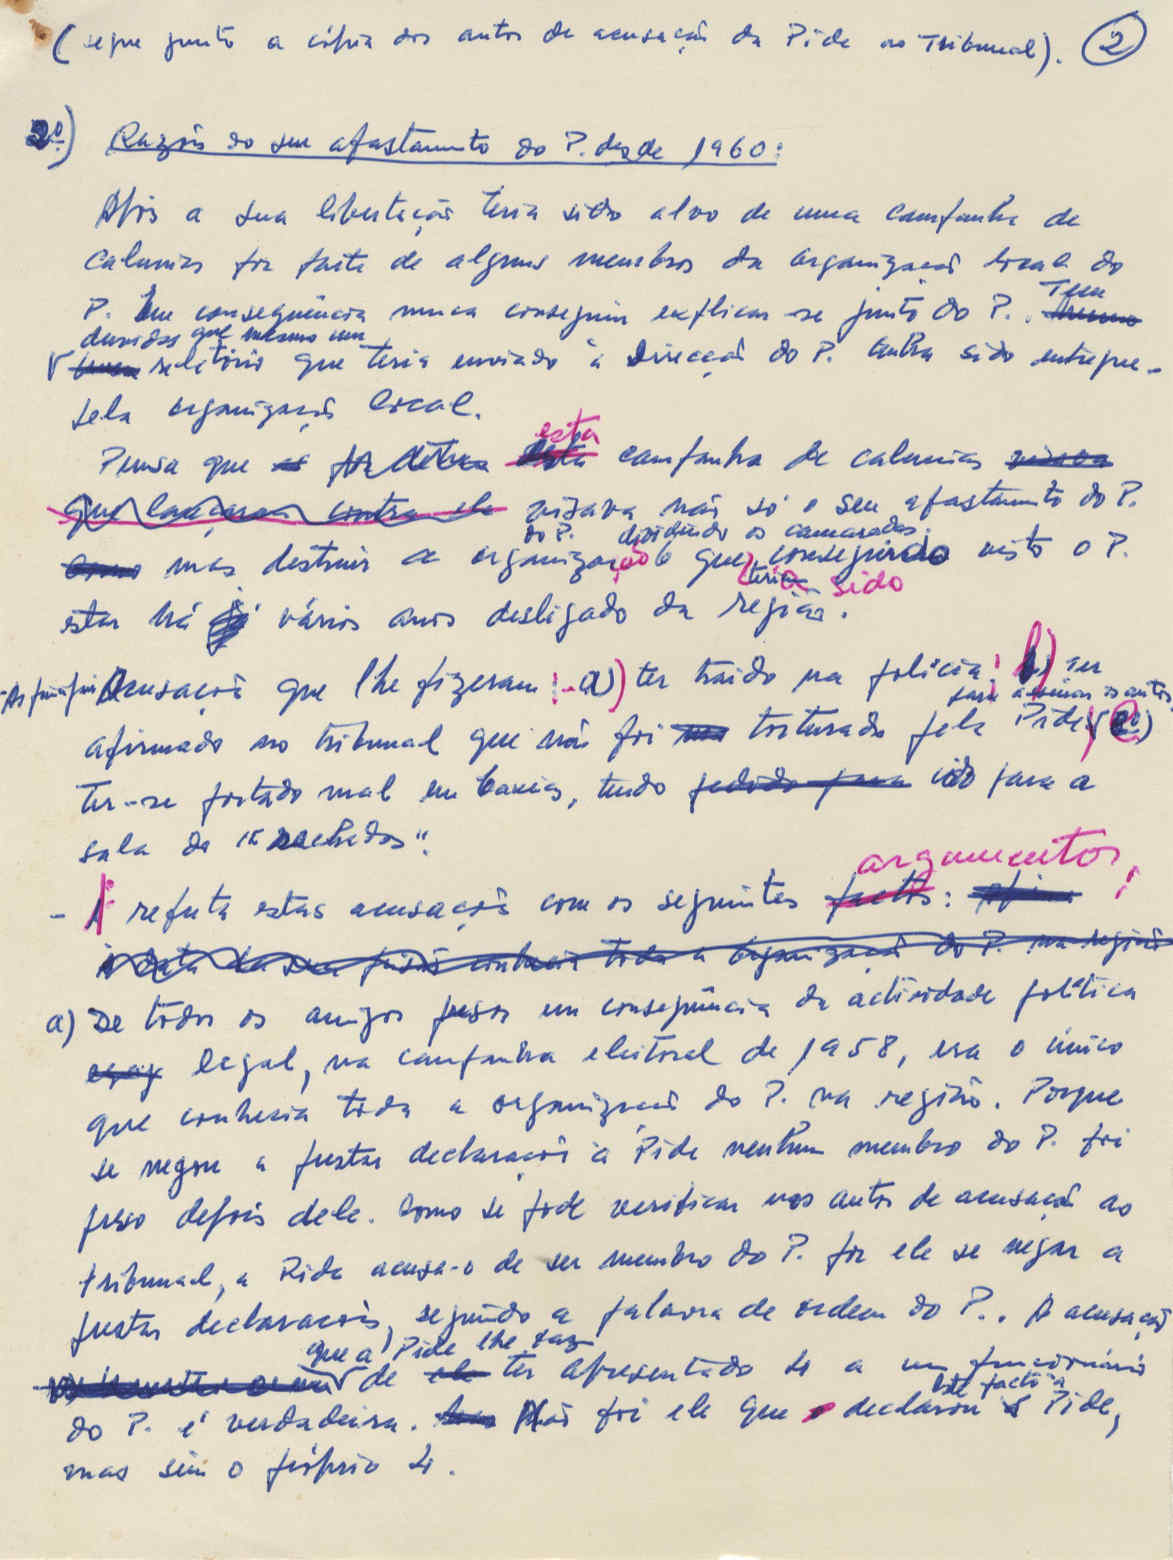 (segue junto a cópia dos autos de acusação da Pide ao Tribunal). 2
2º) Razões do seu afastamento do P. desde 1960:
Após a sua libertação teria sido alvo de uma campanha de
calunias por parte de alguns membros da organização local do
P. Em consequência nunca conseguiu explicar-se junto do P.. Tem
duvidas que mesmo um
relatório que teria enviado à Direcção do P. tenha sido entregue
pela organização local.
Pensa que por detrás esta campanha de calunias visava
que lançaram contra ele visava não só o seu afastamento do P.
do P. dividindo os camaradas.
como mas destruir a organização o que conseguido visto o P.
teria sido
estar há já vários anos desligado da região.
Acusações que lhe fizeram: - a) ter traido na policia; b) ser
para assinar os autos
afirmado no tribunal que não foi torturado pela Pide; c)
Ter-se portado mal em Caxias, tendo pedido para ido para a
sala de "rachados".
argumentos:
- refuta estas acusações com os seguintes factos:
toda a organização do P. na região
a) De todos os amigos presos em consequência da actividade política
legal, na campanha eleitoral de 1958, era o único
que conhecia toda a organização do P. na região. Porque
se negou a prestar declarações à Pide nenhum membro do P. foi
preso depois dele. Como se pode verificar nos autos de acusação ao
tribunal, a Pide acusa-o de ser membro do P. por ele se negar a
prestar declarações, segundo a palavra de ordem do P.. A acusação
que a Pide lhe faz
de ele ter apresentado 4 a um funcionário
este facto à
do P. é verdadeira. Não foi ele que o declarou Pide,
mas sim o próprio 4.